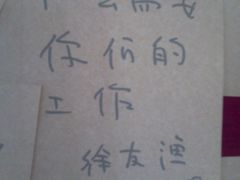 需要
你们的
工作
徐友渔